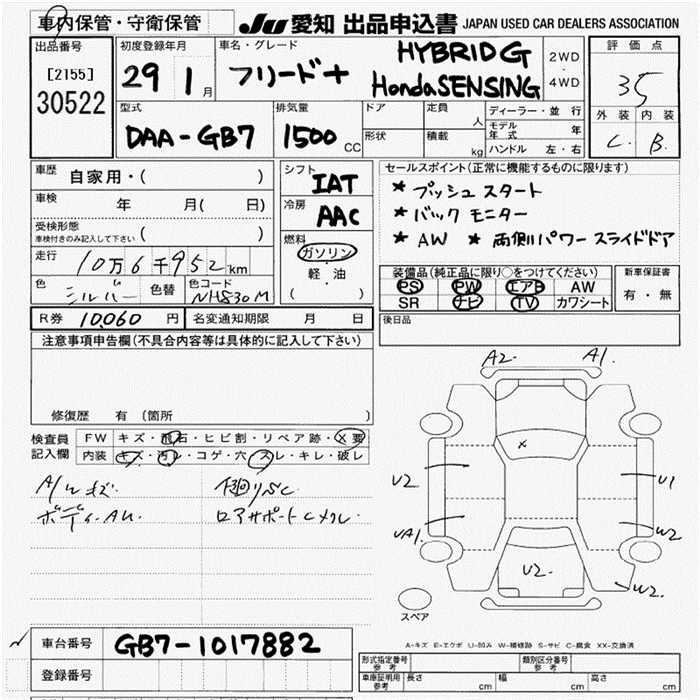 車内保管・守衛保管
JU 愛知 出品申込書 JAPAN USED CAR DEALERS ASSOCIATION
出品番号
[2155]
30522
初度登録年月
29 1月
車名・グレード
フリード+ HYBRID G
Honda SENSING
2WD
・
4WD
評価点
35
外装 内装
C. B.
型式
DAA-GB7
排気量
1500 CC
ドア
形状
定員 人
積載 kg
ディーラー・並行
モデル年式 年
ハンドル 左・右
車歴 自家用・( )
車検 年 月( 日)
受検形態
車検付きのみ記入して下さい ( )
走行 10万6千952km
色 シルバー 色替 色コード NH830M
シフト
IAT
冷房
AAC
燃料
ガソリン
・
軽・油
( )
セールスポイント(正常に機能するものに限ります)
★ プッシュスタート
★ バックモニター
★ AW ★ 両側パワースライドドア
装備品(純正品に限り○をつけてください)
PS PW エアB AW
SR ナビ TV カワシート
新車保証書
有・無
R券 10,060 円 名変通知期限 月 日
後日品
注意事項申告欄(不具合内容等は具体的に記入して下さい)
修復歴 有(箇所 )
検査員
記入欄
FW キズ・飛石・ヒビ割・リペア跡・X要
内装 キズ・汚レ・コゲ・穴・スレ・キレ・破レ
A/Wキズ
ボディAU
ロアサポートCメクレ
A2 A1.
X
U2 U1
UA1. W2
U2 W2.
スペア
A-キズ E-エクボ U-凹み W-補修跡 S-サビ C-腐食 XX-交換済
車台番号 GB7-1017882
登録番号
形式指定番号
参考
類別区分番号
参考
車庫証明用
参考
長さ cm 幅 cm 高さ cm